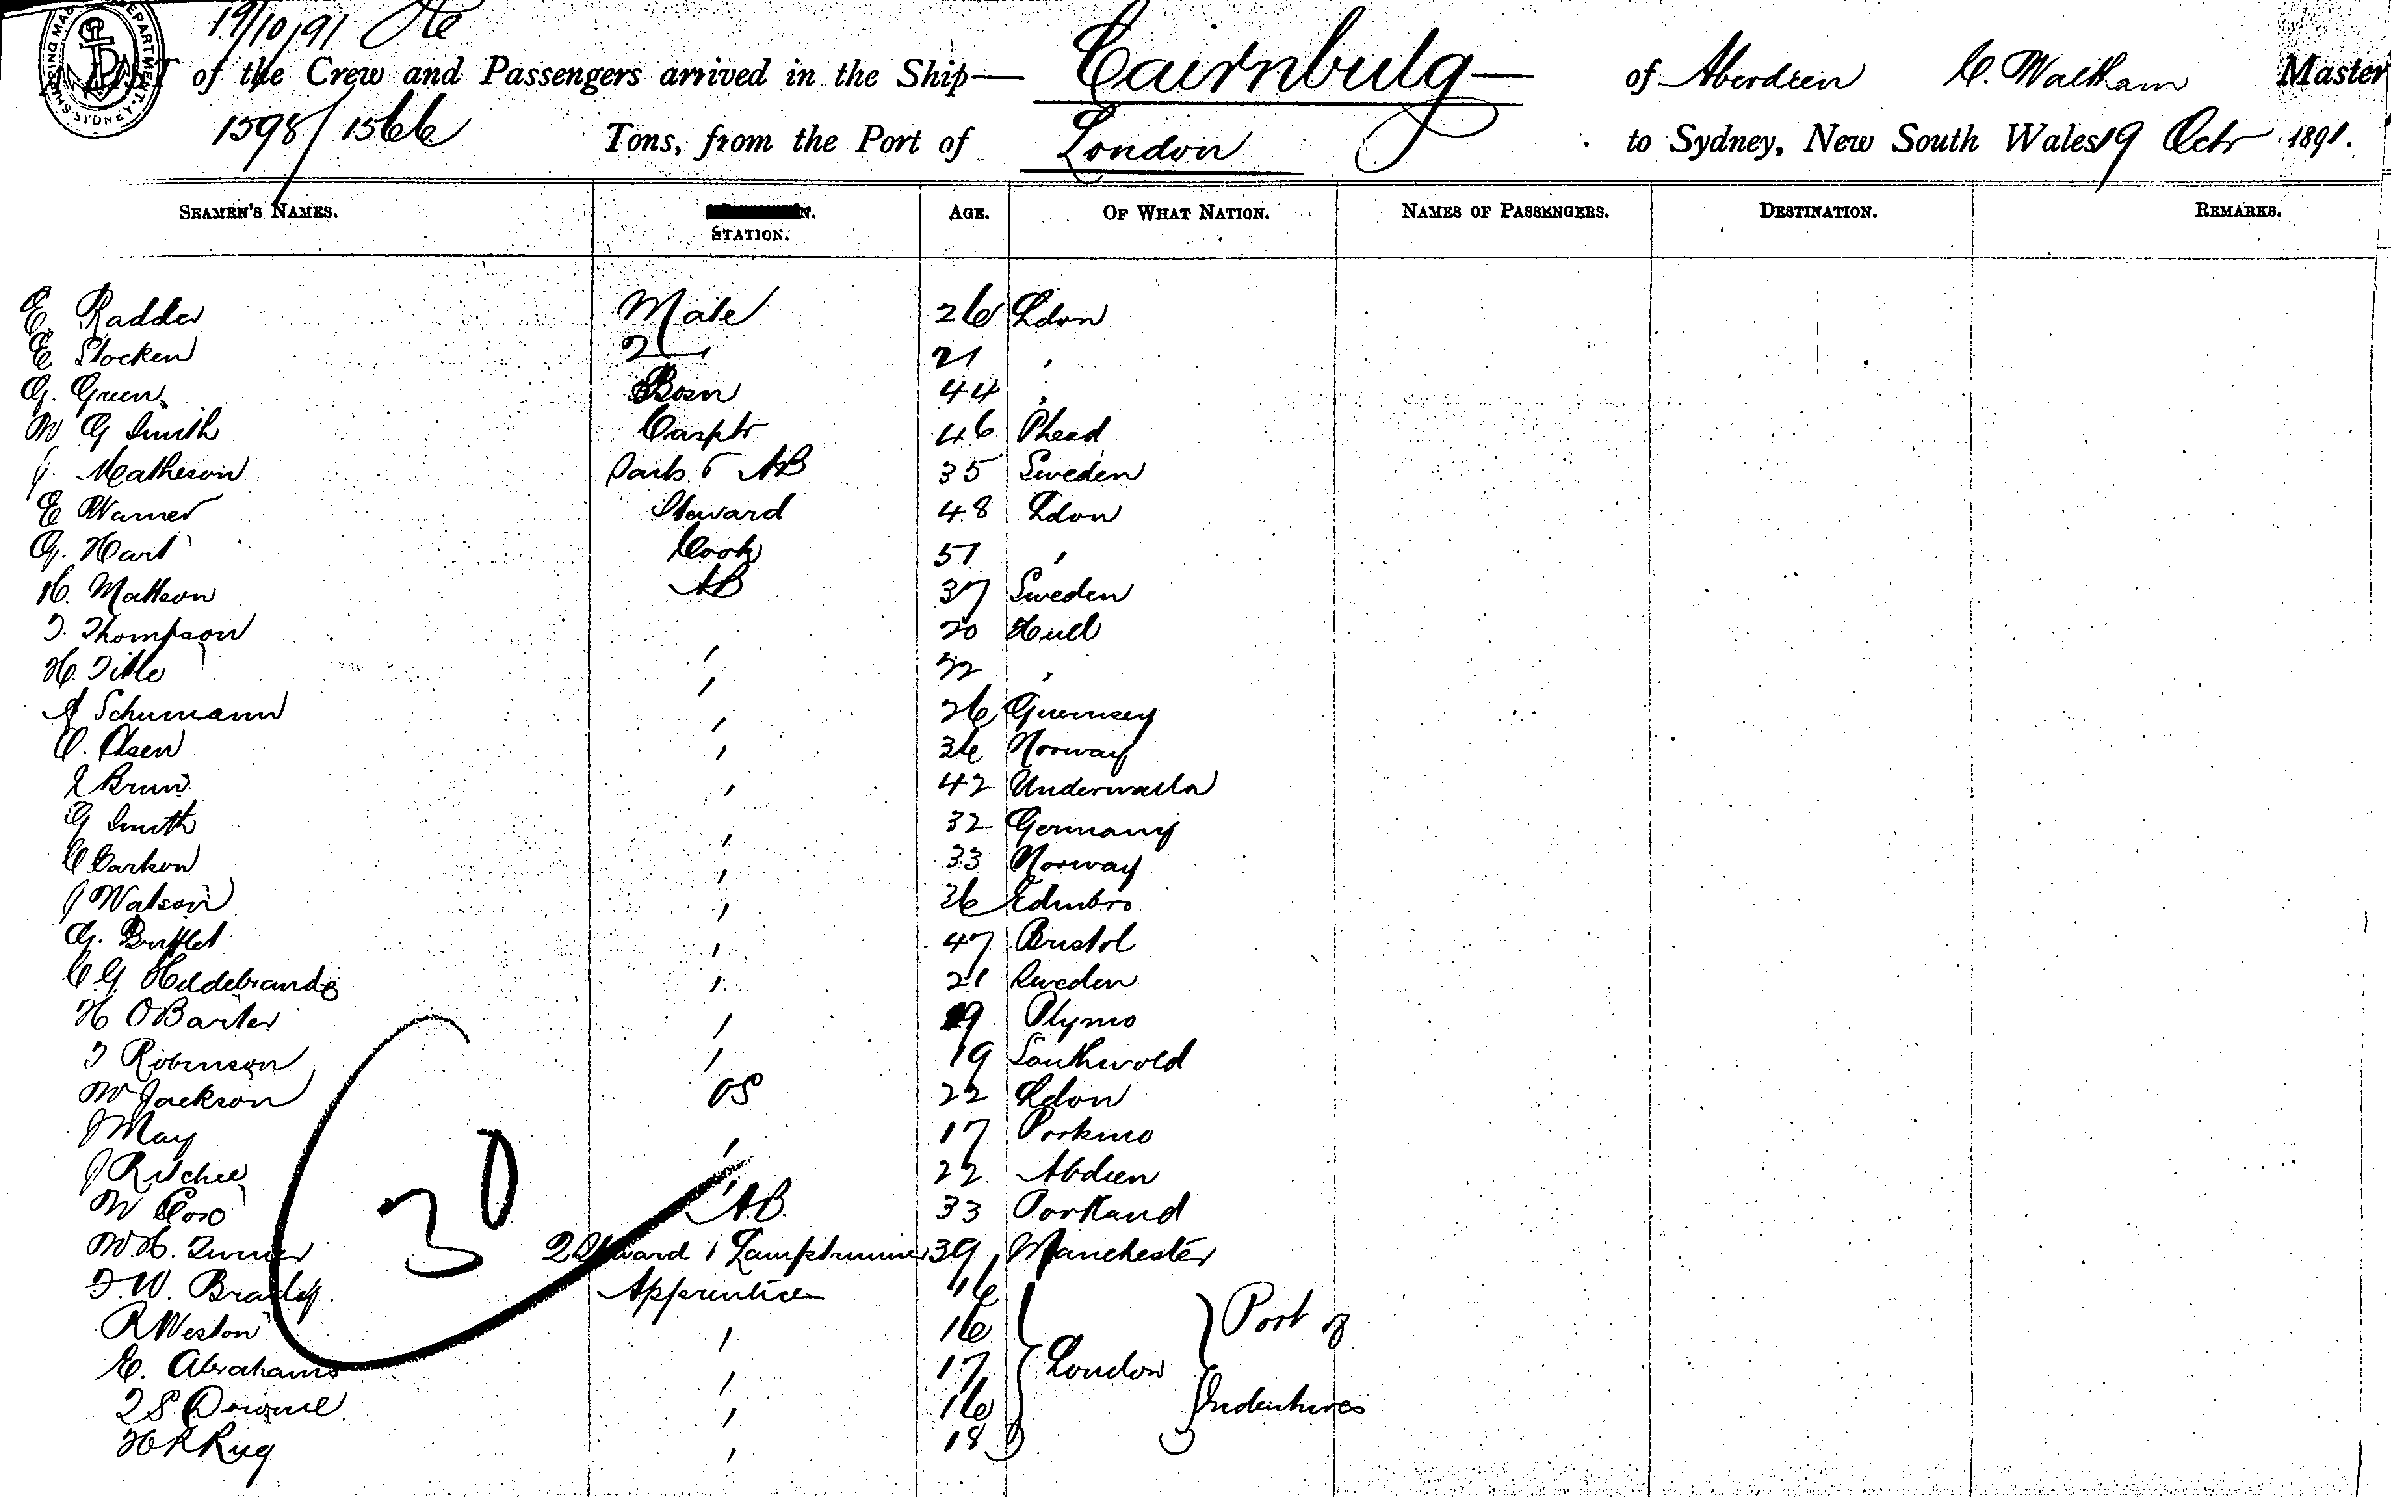 19/10/91
A LIST of the Crew and Passengers arrived in the Ship Cairnbulg of Aberdeen C. Waltham Master
1598/1566 Tons, from the Port of London to Sydney, New South Wales 19 Octr 1891.
SEAMEN'S NAMES. STATION. AGE. OF WHAT NATION. NAMES OF PASSENGERS. DESTINATION. REMARKS.
E. Radder Mate 26 Ldon
E. Stocken 2 21 "
G. Green 44 Bosn "
W G Smith 46 Phead
J. Matheson AB 35 Sweden
E Warner Steward 48 Ldon
G. Hart Cook 51 "
H. Mattson AB 37 Sweden
T. Thompson " 20 Hull
H. Tittle " 22 "
A Schumann " 26 Guernsey
C. Olsen " 36 Norway
J Brun " 42
G Smith " 32 Germany
C Carlson " 33 Norway
J Watson " 26 Edinbro
G. " 47 Bristol
C. G. Hildebrand " 21 Sweden
H O Barter " 19 Plymo
T Robinson " 19 Southwold
W Jackson OS 22 Ldon
J May " 17
J Ritchie " 22 Abdeen
W Cox AB. 33 Portland
W. H. Turner 2 Steward & Lamptrimmer 39 Manchester
F. W. Bradly Apprentice 16
R Weston " 16 Port of
E. Abrahams " 17 London
S Downie " 16 Indentures
H R Rug " 18
30